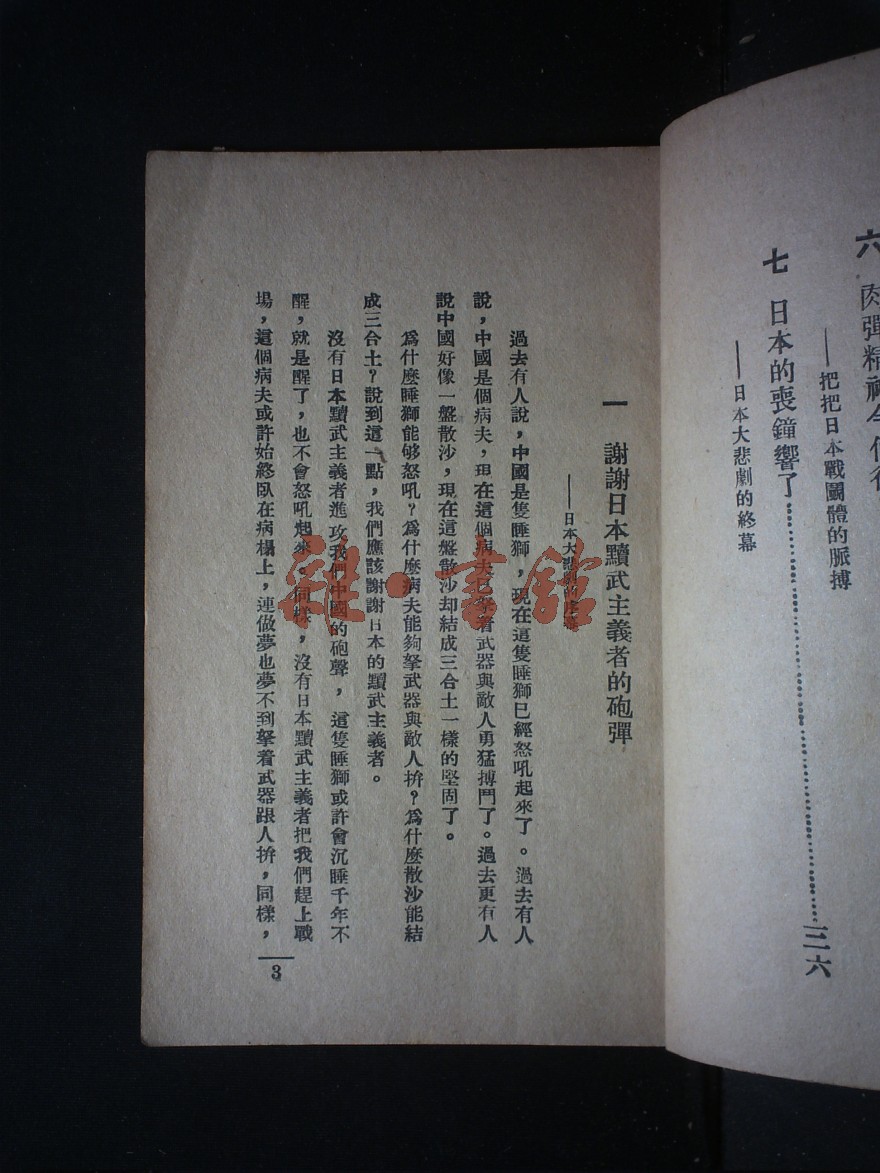 六 肉彈精神今
——把把日本戰團體的脈搏
七 日本的喪鐘響了……………………三六
——日本大悲劇的終幕
一 謝謝日本黷武主義者的砲彈
——日本大悲劇的
過去有人說，中國是隻睡獅，現在這隻睡獅已經怒吼起來了。過去有人
說，中國是個病夫，現在這個病夫已拏着武器與敵人勇猛搏鬥了。過去更有人
說中國好像一盤散沙，現在這盤散沙却結成三合土一樣的堅固了。
爲什麼睡獅能够怒吼？爲什麼病夫能夠拏武器與敵人拚？爲什麼散沙能結
成三合土？說到這一點，我們應該謝謝日本的黷武主義者。
沒有日本黷武主義者進攻我們中國的砲聲，這隻睡獅或許會沉睡千年不
醒，就是醒了，也不會怒吼起來。同樣，沒有日本黷武主義者把我們趕上戰
場，這個病夫或許始終臥在病榻上，連做夢也夢不到拏着武器跟人拚，同樣，
3
雜·書館